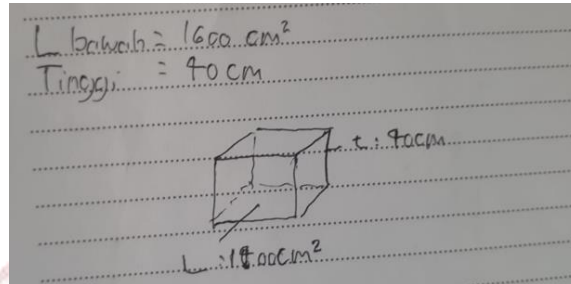 L bawah = 1600 cm²
Tinggi = 40 cm
t : 40cm
L : 1600cm²